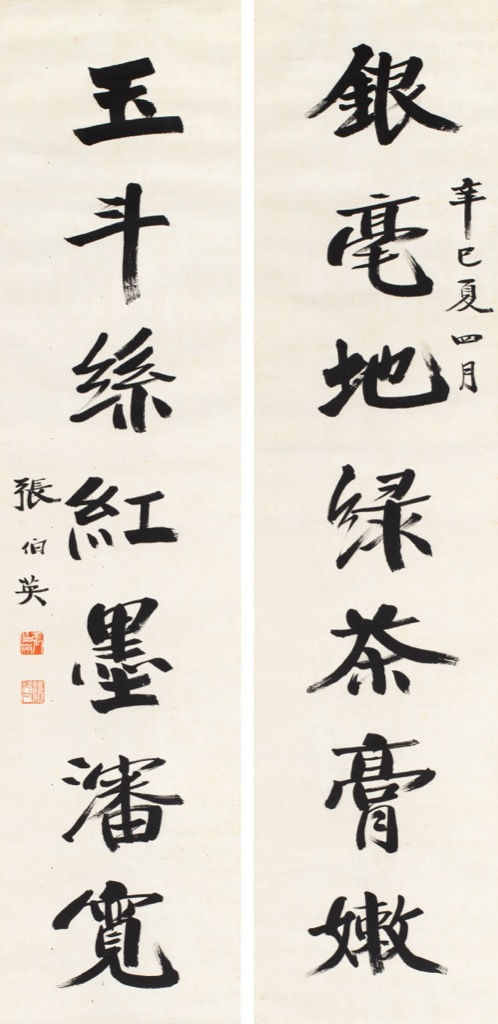 辛巳夏四月
銀毫地緑茶膏嫩
玉斗絲紅墨瀋寬
張伯英